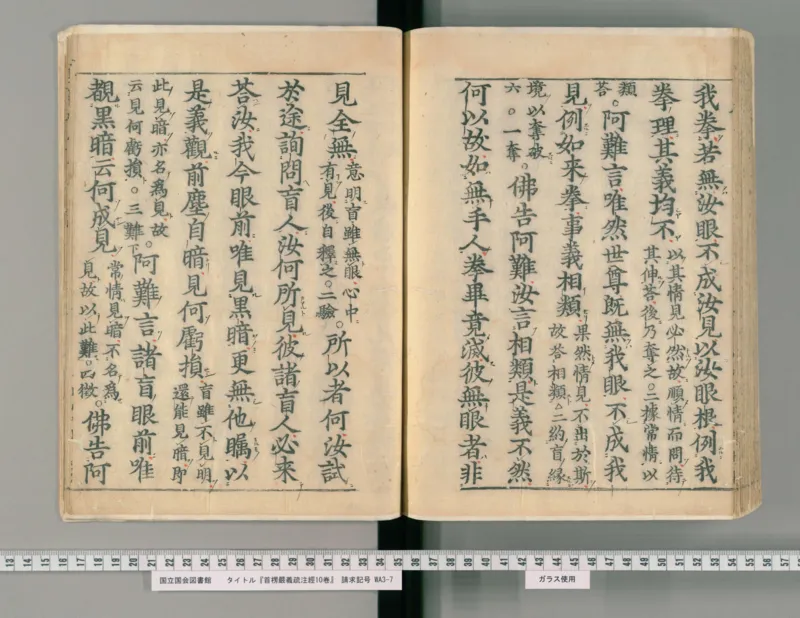 我拳若無汝眼不成汝見以汝眼根例我
拳理其義均不以其情見必然故順情而問待
其伸荅後乃奪之二據常情以
類
荅。阿難言唯然世尊既無我眼不成我
見例如来拳事義相類果然情見不出於斯
故荅相類二約盲緣
境以奪破
六。一奪。佛告阿難汝言相類是義不然
何以故如無手人拳畢竟滅彼無眼者非
見全無意明盲雖無眼心中
有見後自釋之二驗。所以者何汝試
於途詢問盲人汝何所見彼諸盲人必来
荅汝我今眼前唯見黒暗更無他瞩以
是義觀前塵自暗見何虧損盲雖不見明
還能見暗即
此見暗亦名為見故
云見何虧損。三難下。阿難言諸盲眼前唯
覩黒暗云何成見常情見暗不名為
見故以此難。四徵。佛告阿
13 14 15 16 17 18 19 20 21 22 23 24 25 26 27 28 29 30 31 32 33 34 35 36 37 38 39 40 41 42 43 44 45 46 47 48 49 50 51 52 53 54 55 56 57
国立国会図書館 タイトル『首楞嚴義疏注經10巻』 請求記号 WA3-7
ガラス使用